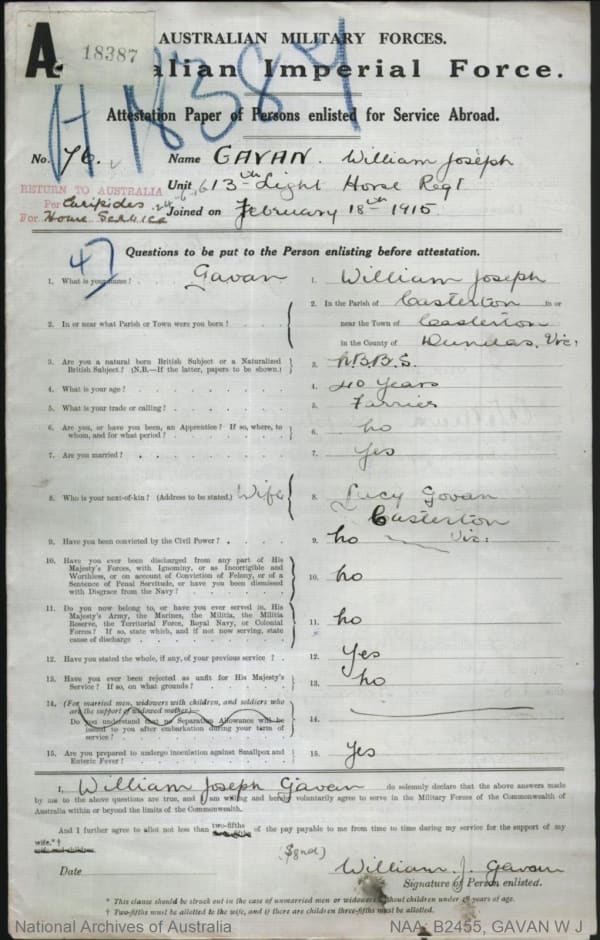 18387
AUSTRALIAN MILITARY FORCES.
A lian Imperial Force.
H 18387
Attestation Paper of Persons enlisted for Service Abroad.
No. 76. Name GAVAN. William Joseph
RETURN TO AUSTRALIA Unit 13th Light Horse Regt
Per Euripides
For Home Service Joined on February 18th 1915
47
Questions to be put to the Person enlisting before attestation.
1. What is your name? Gavan 1. William Joseph
2. In or near what Parish or Town were you born? 2. In the Parish of Casterton in or
near the Town of Casterton
in the County of Dundas, Vic:
3. Are you a natural born British Subject or a Naturalized
British Subject? (N.B.—If the latter, papers to be shown.) 3. N.B.B.S.
4. What is your age? 4. 40 years
5. What is your trade or calling? 5. Farrier
6. Are you, or have you been, an Apprentice? If so, where, to
whom, and for what period? 6. No
7. Are you married? 7. Yes
8. Who is your next-of-kin? (Address to be stated) Wife 8. Lucy Gavan
Casterton
Vic:
9. Have you been convicted by the Civil Power? 9. No
10. Have you ever been discharged from any part of His
Majesty's Forces, with Ignominy, or as Incorrigible and
Worthless, or on account of Conviction of Felony, or of a
Sentence of Penal Servitude, or have you been dismissed
with Disgrace from the Navy? 10. No
11. Do you now belong to, or have you ever served in, His
Majesty's Army, the Marines, the Militia, the Militia
Reserve, the Territorial Force, Royal Navy, or Colonial
Forces? If so, state which, and if not now serving, state
cause of discharge 11. No
12. Have you stated the whole, if any, of your previous service? 12. Yes
13. Have you ever been rejected as unfit for His Majesty's
Service? If so, on what grounds? 13. No
14. (For married men, widowers with children, and soldiers who
are the support of widowed mother)
Do you understand that no Separation Allowance will be
issued to you after embarkation during your term of
service? 14.
15. Are you prepared to undergo inoculation against Smallpox and
Enteric Fever? 15. Yes
I, William Joseph Gavan do solemnly declare that the above answers made
by me to the above questions are true, and I am willing and hereby voluntarily agree to serve in the Military Forces of the Commonwealth of
Australia within or beyond the limits of the Commonwealth.
And I further agree to allot not less than two-fifths of the pay payable to me from time to time during my service for the support of my
wife.*†
wife and children
(Sgnd) William. J. Gavan
Date Signature of Person enlisted.
* This clause should be struck out in the case of unmarried men or widowers without children under years of age.
† Two-fifths must be allotted to the wife, and if there are children three-fifths must be allotted.
National Archives of Australia NAA: B2455, GAVAN W J